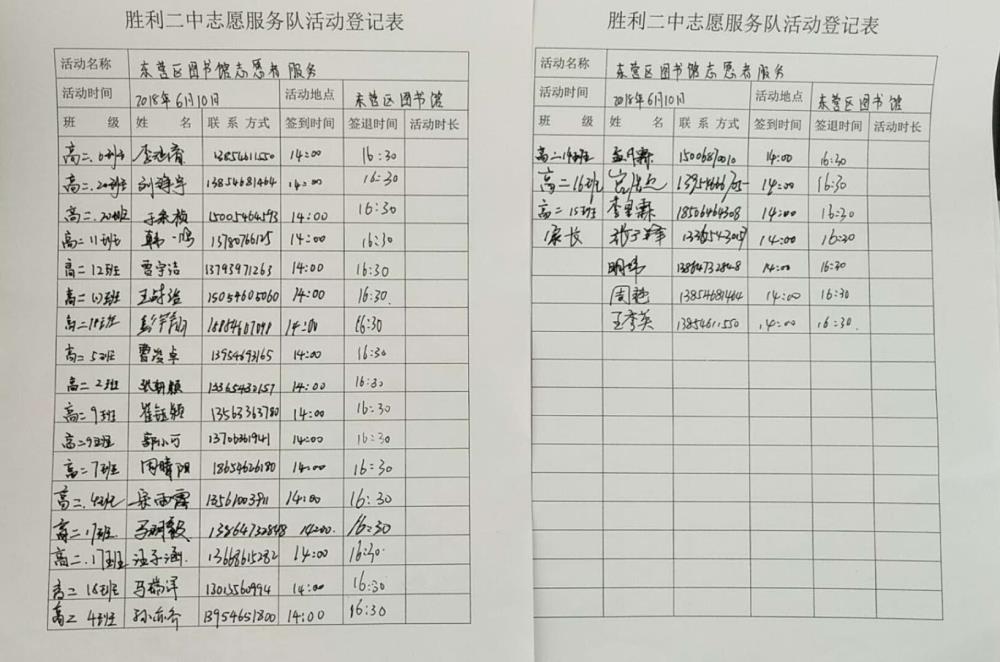 胜利二中志愿服务队活动登记表
活动名称 东营区图书馆志愿者服务
活动时间 2018年6月10日 活动地点 东营区图书馆
班级 姓名 联系方式 签到时间 签退时间 活动时长
高二. 13854611550 14:00 16:30
高二.20班 13854681464 14:00 16:30
高二.20班 15005464593 14:00 16:30
高二11班 韩一鸣 13780766125 14:00 16:30
高二12班 曹宇洁 13793971263 14:00 16:30
高二10班 15054605060 14:00 16:30
高二 14:00 16:30
高二5班 曹浚卓 13954693165 14:00 16:30
高二2班 13365432157 14:00 16:30
高二9班 崔钰颖 13563363780 14:00 16:30
高二9班 郭小可 13706361941 14:00 16:30
高二7班 周晴阳 18654626180 14:00 16:30
高二.4班 14:00 16:30
高二.17班 马明毅 13864732848 14:00 16:30
高二.17班 汪子涵 13668615282 14:00 16:30
高二18班 马瑞泽 13015560994 14:00 16:30
高二4班 孙亦乔 13954651800 14:00 16:30
胜利二中志愿服务队活动登记表
活动名称 东营区图书馆志愿者服务
活动时间 2018年6月10日 活动地点 东营区图书馆
班级 姓名 联系方式 签到时间 签退时间 活动时长
高二 14:00 16:30
高二16班 14:00 16:30
高二15班 18506464308 14:00 16:30
家长 14:00 16:30
明玮 13864732848 14:00 16:30
周艳 13854681464 14:00 16:30
王秀英 13854611550 14:00 16:30